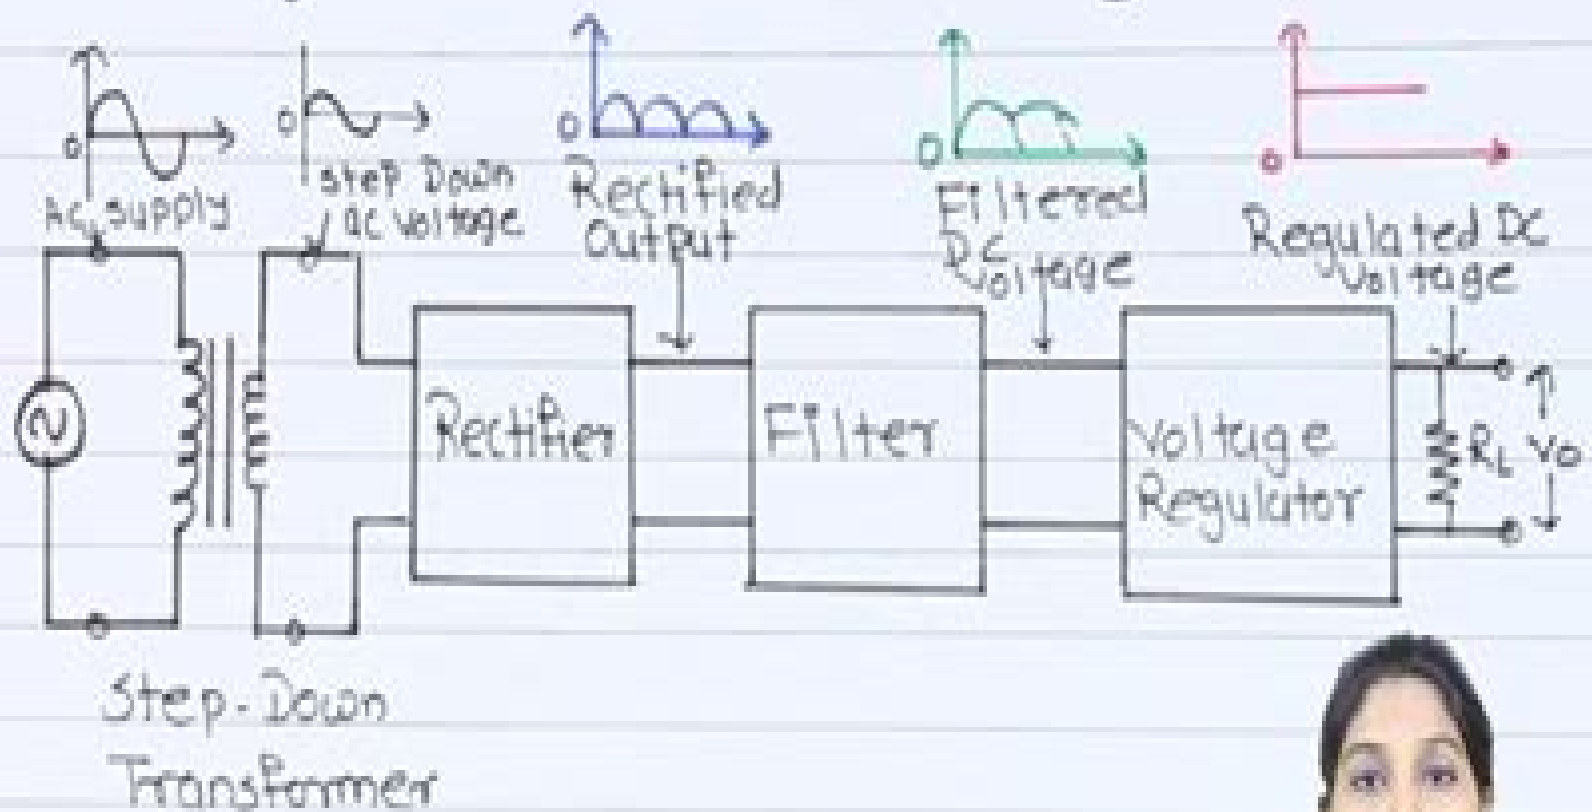 0
AC supply
0
Step Down
ac voltage
0
Rectified
Output
0
Filtered
DC
voltage
0
Regulated DC
Voltage
Rectifier
Filter
Voltage
Regulator
RL
Vo
Step-Down
Transformer